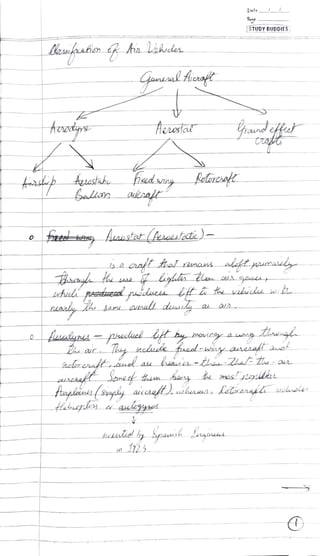 Date / /
Page
STUDY BUDDIES
Classification of Air Vehicles
General Aircraft
Aerodyne Aerostat Ground effect
craft
Airship Aerostatic Fixed wing Rotorcraft
Balloon aircraft
Aerostat (Aerostatic) -
is a craft that remains aloft primarily
through the use of lighter than air gases,
which produces lift to the vehicles w
nearly the same overall density as air.
Aerodynes - produce lift by moving a wing through
the air. They include fixed-wing aircraft and
rotorcraft, and are heavier-than-that the air
aircraft. Some of them being the most popular
Aeroplanes (simply aircraft), whereas, Rotorcrafts includes
Helicopters or autogyros
invented by Spanish Engineer
in 1923
1